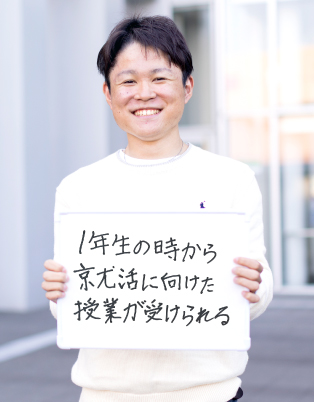 1年生の時から
就活に向けた
授業が受けられる